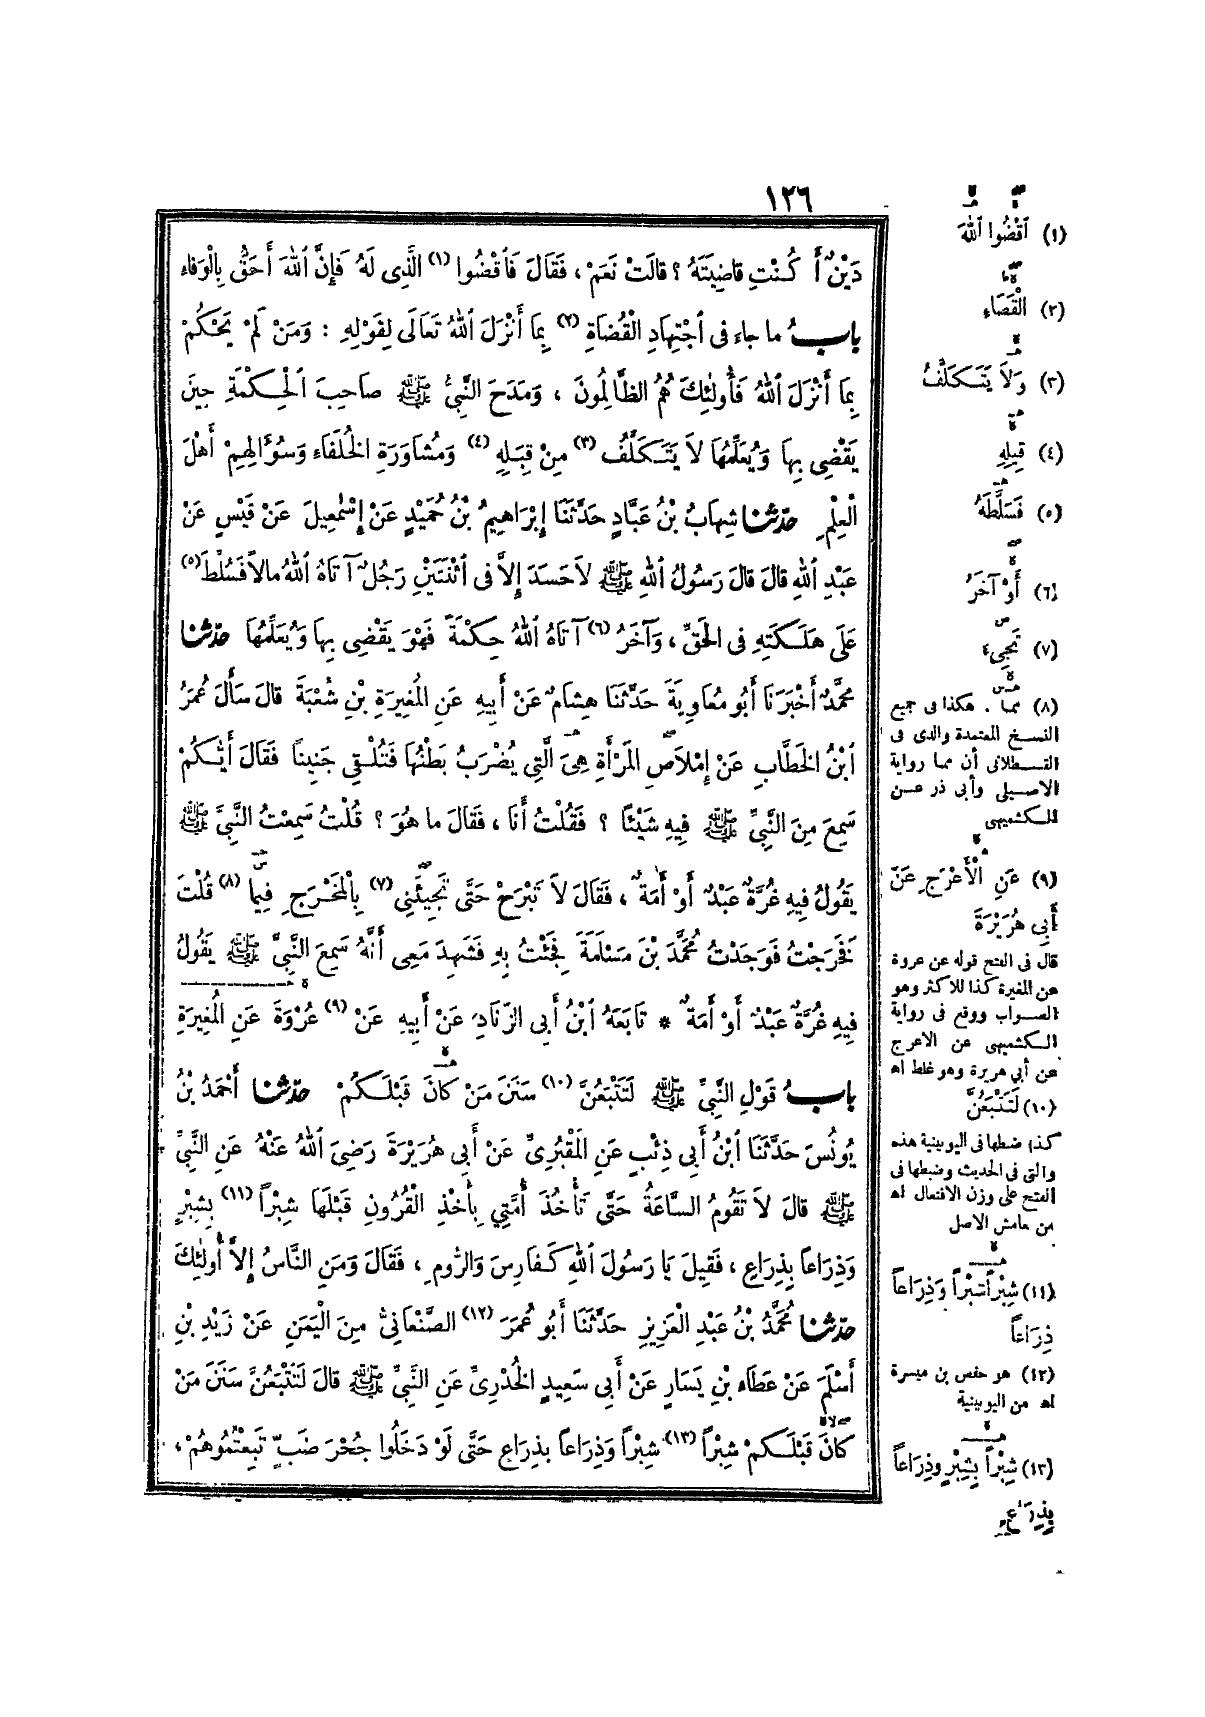 ١٢٦
دَيْنٌ أَ كُنْتِ قاضِيَتَهُ ؟ قالَتْ نَعَمْ ، فَقَالَ فَاقْضُوا (١) الَّذِى لَهُ فَإِنَّ اللهَ أَحَقُّ بِالْوَفَاءِ
بابُ ما جاءَ فى اجْتِهادِ الْقُضَاةِ (٢) بِمَا أَنْزَلَ اللهُ تَعَالَى لِقَوْلِهِ : وَمَنْ لَمْ يَحْكُمْ
بِمَا أَنْزَلَ اللهُ فَأُولٰئِكَ هُمُ الظَّالِمُونَ ، وَمَدَحَ النَّبِيُّ ﷺ صاحِبَ الْحِكْمَةِ حِينَ
يَقْضِى بِهَا وَيُعَلِّمُهَا لاَ يَتَكَلَّفُ (٣) مِنْ قِبَلِهِ (٤) وَمُشَاوَرَةِ الْخُلَفَاءِ وَسُؤَالِهِمْ أَهْلَ
الْعِلْمِ حدّثنا شِهَابُ بْنُ عَبَّادٍ حَدَّثَنَا إِبْرَاهِيمُ بْنُ حُمَيْدٍ عَنْ إِسْمٰعِيلَ عَنْ قَيْسٍ عَنْ
عَبْدِ اللهِ قالَ قالَ رَسُولُ اللهِ ﷺ لاَ حَسَدَ إِلاَّ فى اثْنَتَيْنِ رَجُلٌ آتَاهُ اللهُ مالاً فَسُلِّطَ (٥)
عَلَى هَلَكَتِهِ فى الحَقِّ ، وَآخَرُ (٦) آتَاهُ اللهُ حِكْمَةً فَهْوَ يَقْضِى بِهَا وَيُعَلِّمُهَا حدّثنا
مُحَمَّدٌ أَخْبَرَنَا أَبُو مُعَاوِيَةَ حَدَّثَنَا هِشَامٌ عَنْ أَبِيهِ عَنِ الْمُغِيرَةِ بْنِ شُعْبَةَ قالَ سَأَلَ عُمَرُ
ابْنُ الخَطَّابِ عَنْ إِمْلاَصِ الْمَرْأَةِ هِىَ الَّتِى يُضْرَبُ بَطْنُهَا فَتُلْقِى جَنِينًا فَقَالَ أَيُّكُمْ
سَمِعَ مِنَ النَّبِيِّ ﷺ فِيهِ شَيْئًا ؟ فَقُلْتُ أَنَا ، فَقَالَ ما هُوَ ؟ قُلْتُ سَمِعْتُ النَّبِيَّ ﷺ
يَقُولُ فِيهِ غُرَّةٌ عَبْدٌ أَوْ أَمَةٌ ، فَقَالَ لاَ تَبْرَحْ حَتَّى تَجِيئَنِى (٧) بِالْمَخْرَجِ فِيمَا (٨) قُلْتَ
فَخَرَجْتُ فَوَجَدْتُ مُحَمَّدَ بْنَ مَسْلَمَةَ فَجِئْتُ بِهِ فَشَهِدَ مَعِى أَنَّهُ سَمِعَ النَّبِيَّ ﷺ يَقُولُ
فِيهِ غُرَّةٌ عَبْدٌ أَوْ أَمَةٌ * تَابَعَهُ ابْنُ أَبِى الزِّنَادِ عَنْ أَبِيهِ عَنْ (٩) عُرْوَةَ عَنِ الْمُغِيرَةِ
بابُ قَوْلِ النَّبِيِّ ﷺ لَتَتْبَعُنَّ (١٠) سَنَنَ مَنْ كانَ قَبْلَكُمْ حدّثنا أَحْمَدُ بْنُ
يُونُسَ حَدَّثَنَا ابْنُ أَبِى ذِئْبٍ عَنِ الْمَقْبُرِىِّ عَنْ أَبِى هُرَيْرَةَ رَضِىَ اللهُ عَنْهُ عَنِ النَّبِيِّ
ﷺ قالَ لاَ تَقُومُ السَّاعَةُ حَتَّى تَأْخُذَ أُمَّتِى بِأَخْذِ الْقُرُونِ قَبْلَهَا شِبْرًا (١١) بِشِبْرٍ
وَذِرَاعًا بِذِرَاعٍ ، فَقِيلَ يَا رَسُولَ اللهِ كَفَارِسَ وَالرُّومِ ، فَقَالَ وَمَنِ النَّاسُ إِلاَّ أُولٰئِكَ
حدّثنا مُحَمَّدُ بْنُ عَبْدِ الْعَزِيزِ حَدَّثَنَا أَبُو عُمَرَ (١٢) الصَّنْعَانِىُّ مِنَ الْيَمَنِ عَنْ زَيْدِ بْنِ
أَسْلَمَ عَنْ عَطَاءِ بْنِ يَسَارٍ عَنْ أَبِى سَعِيدٍ الخُدْرِىِّ عَنِ النَّبِيِّ ﷺ قالَ لَتَتْبَعُنَّ سَنَنَ مَنْ
كانَ قَبْلَكُمْ شِبْرًا (١٣) شِبْرًا وَذِرَاعًا بِذِرَاعٍ حَتَّى لَوْ دَخَلُوا جُحْرَ ضَبٍّ تَبِعْتُمُوهُمْ ،
(١) اقْضُوا اللهَ
(٢) الْقَضَاءِ
(٣) وَلاَ يَتَكَلَّفُ
(٤) قِيلِهِ
(٥) فَسَلَّطَهُ
(٦) أَوْ آخَرُ
(٧) تَجِىءَ
(٨) مما . هكذا فى جميع
النسخ المعتمدة والذى فى
القسطلانى أن مما رواية
الاصيلى وأبى ذر عن
الكشميهنى
(٩) عَنِ الْأَعْرَجِ عَنْ
أَبِى هُرَيْرَةَ
قال فى الفتح قوله عن عروة
عن المغيرة كذا للاكثر وهو
الصواب ووقع فى رواية
الكشميهنى عن الاعرج
عن أبى هريرة وهو غلط اه
(١٠) لَتَتْبَعُنَّ
كذا ضبطها فى اليونينية هذه
والتى فى الحديث وضبطها فى
الفتح على وزن الافتعال اه
من هامش الاصل
(١١) شِبْرًا شِبْرًا وَذِرَاعًا
ذِرَاعًا
(١٢) هو حفص بن ميسرة
اه من اليونينية
(١٣) شِبْرًا بِشِبْرٍ وَذِرَاعًا
بِذِرَاعٍ